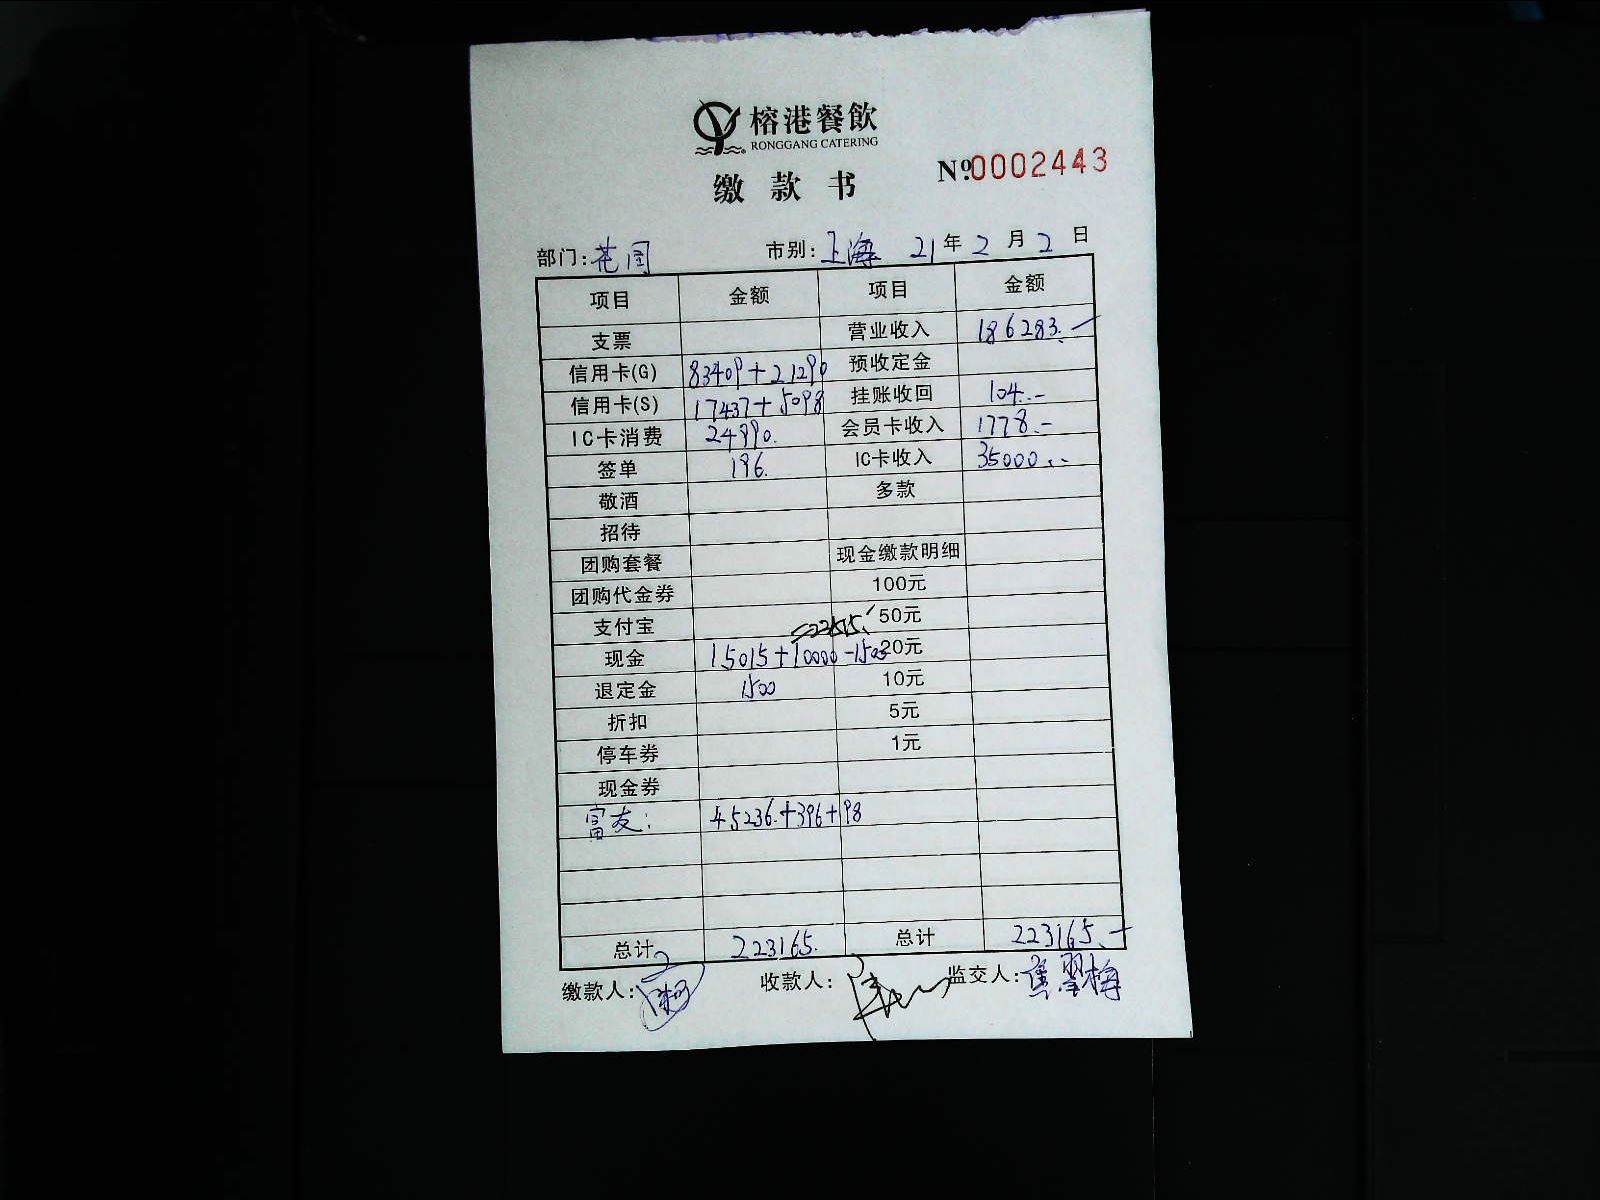 榕港餐飲
RONGGANG CATERING
缴款书 №0002443
部门:花园 市别:上海 21年2月2日
项目 金额 项目 金额
支票 营业收入 186283.-
信用卡(G) 83409+21290 预收定金
信用卡(S) 17437+5098 挂账收回 104.-
IC卡消费 24990. 会员卡收入 1778.-
签单 196. IC卡收入 35000.-
敬酒 多款
招待
团购套餐 现金缴款明细
团购代金券 100元
支付宝 50元
=23515.
现金 15015+10000-1500 20元
退定金 1500 10元
折扣 5元
停车券 1元
现金券
富友: 45236.+396+98
总计 223165. 总计 223165.-
缴款人: 收款人: 监交人: